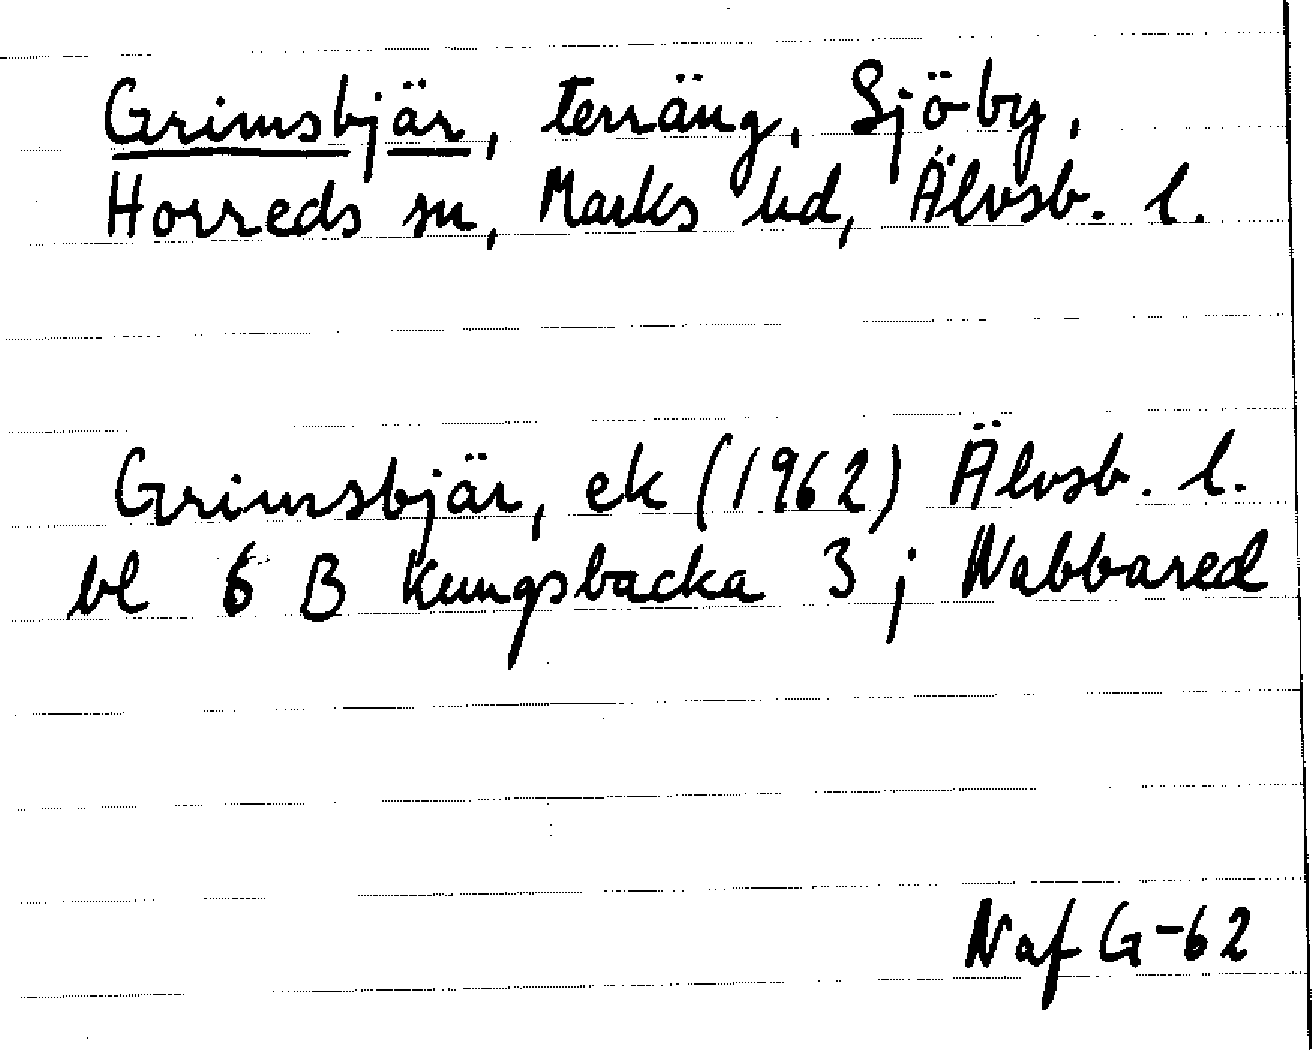 Grimsbjär, terräng, Sjöby,
Horreds sn, Marks hd, Älvsb. l.
Grimsbjär, ek (1962) Älvsb. l.
bl 6 B Kungsbacka 3 j Nabbared
Naf G-62